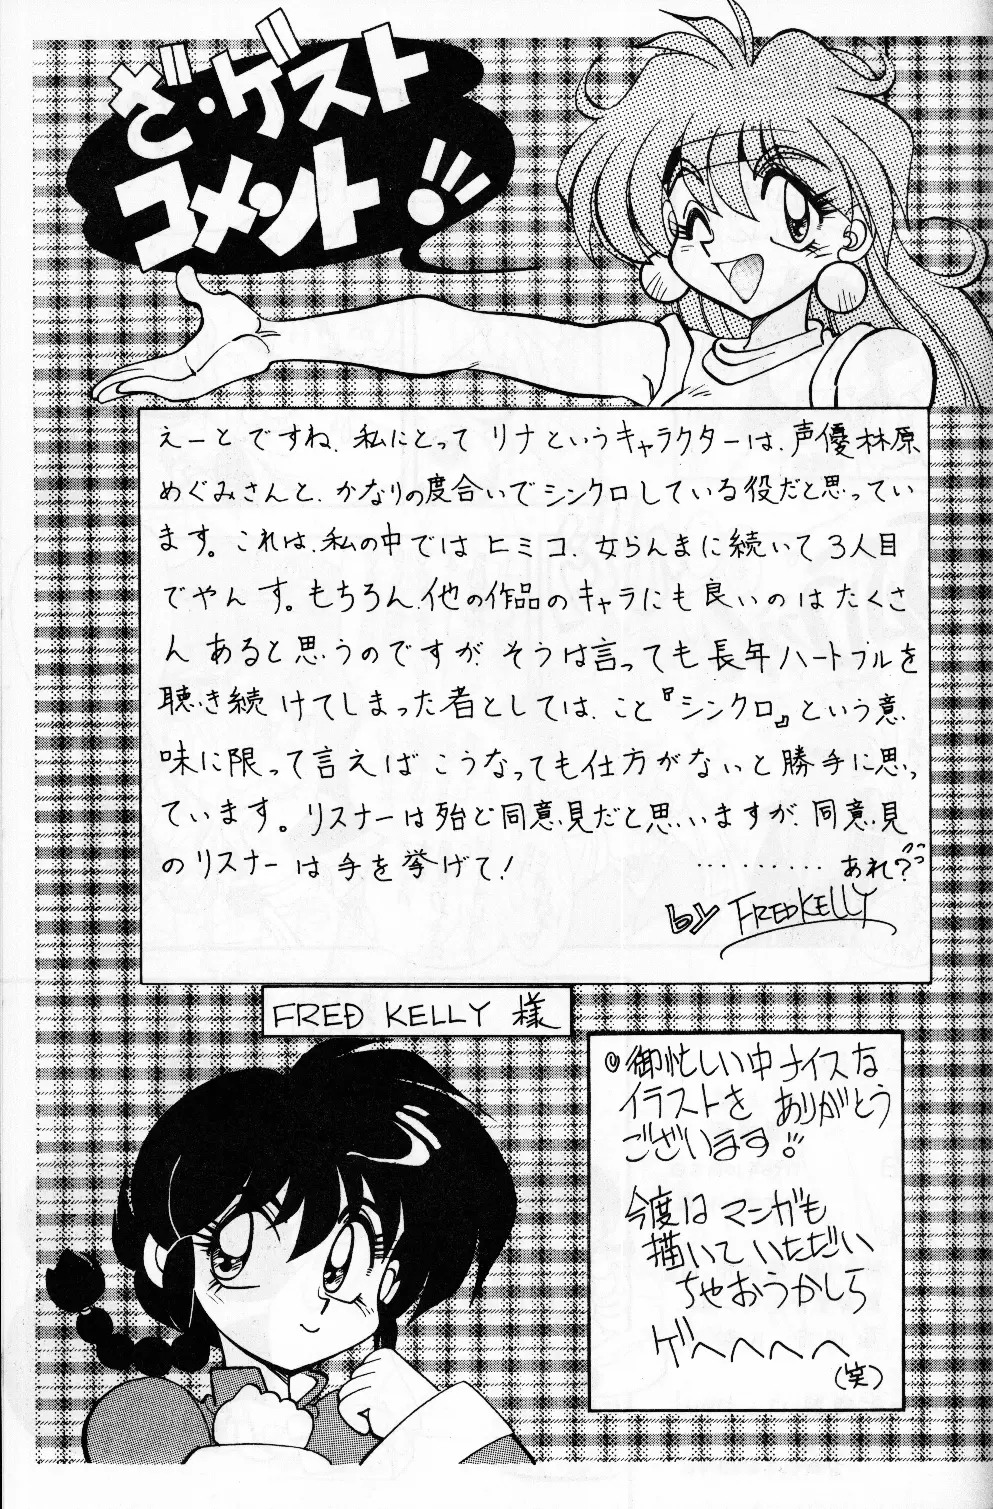 ざ・ゲスト
コメント!!!
えーとですね、私にとって リナというキャラクターは、声優林原
めぐみさんと、かなりの度合いでシンクロしている役だと思ってい
ます。これは、私の中では ヒミコ、女らんまに続いて 3人目
でやんす。もちろん、他の作品のキャラにも良いのはたくさ
ん あると思うのですが、そうは言っても長年ハートフルを
聴き続けてしまった者としては、こと『シンクロ』という意
味に限って言えばこうなっても仕方がないと勝手に思っ
ています。リスナーは殆ど同意見だと思いますが、同意見
のリスナーは手を挙げて!
・・・・・・・・・あれ?
by FRED KELLY
FRED KELLY 様
御忙しい中ナイスな
イラストを ありがとう
ございます!!
今度は マンガも
描いていただい
ちゃおうかしら
ゲヘヘヘヘ
(笑)